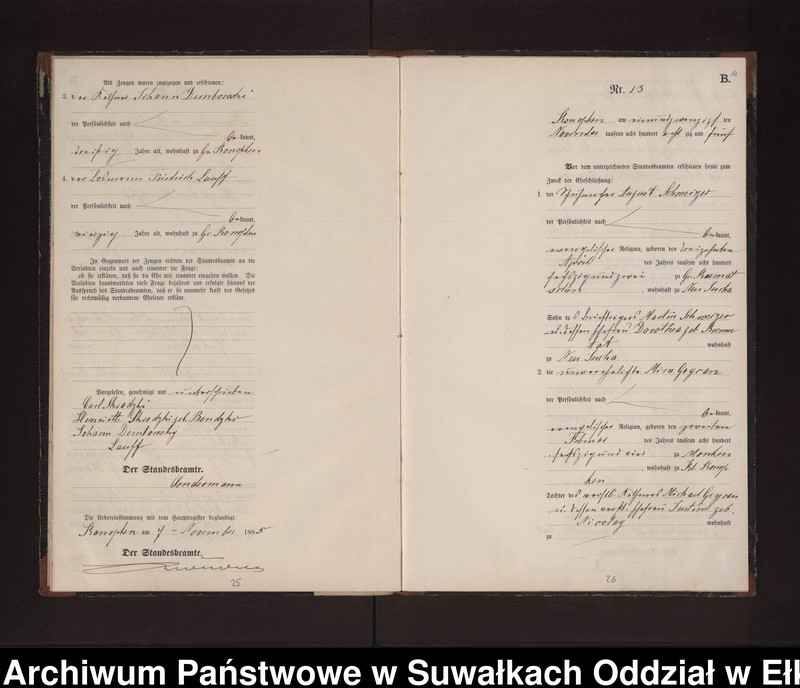 Als Zeugen waren zugezogen und erschienen:
3. der Käthner Johann Dembowski
der Persönlichkeit nach
be kannt,
dreißig Jahre alt, wohnhaft zu Gr. Konopken
4. der Losmann Friedrich Lauff
der Persönlichkeit nach
be kannt,
vierzig Jahre alt, wohnhaft zu Gr. Konopken
In Gegenwart der Zeugen richtete der Standesbeamte an die
Verlobten einzeln und nach einander die Frage:
ob sie erklären, daß sie die Ehe mit einander eingehen wollen. Die
Verlobten beantworteten diese Frage bejahend und erfolgte hierauf der
Ausspruch des Standesbeamten, daß er sie nunmehr kraft des Gesetzes
für rechtmäßig verbundene Eheleute erkläre.
Vorgelesen, genehmigt und unterschrieben
Carl Skrodzki
Henriette Skrodzki geb. Bendzko
Johann Dembowsky
Lauff
Der Standesbeamte.
Die Uebereinstimmung mit dem Hauptregister beglaubigt.
Konopken am 7 ten November 1885
Der Standesbeamte.
25
B.
Nr. 13
Konopken am einundzwanzigsten
November tausend acht hundert acht zig und fünf
Vor dem unterzeichneten Standesbeamten erschienen heute zum
Zweck der Eheschließung:
1. der August Schweizer
der Persönlichkeit nach
be kannt,
evangelischer Religion, geboren den dreizehnten
April des Jahres tausend acht hundert
sechszig und zwei zu Gr.
, wohnhaft zu Neu Sucha
Sohn des Briefträgers Martin Schweizer
und dessen Ehefrau Dorothea geb.
wohnhaft
zu Neu Sucha
2. die unverehelichte
der Persönlichkeit nach
be kannt,
evangelischer Religion, geboren den zweiten
Februar des Jahres tausend acht hundert
sechszig und vier zu
, wohnhaft zu Kl. Konop
ken
Tochter des verstb. Käthners Michael
und dessen verstb. Ehefrau Justine geb.
Nicolay wohnhaft
zu
26
Archiwum Państwowe w Suwałkach Oddział w Ełk